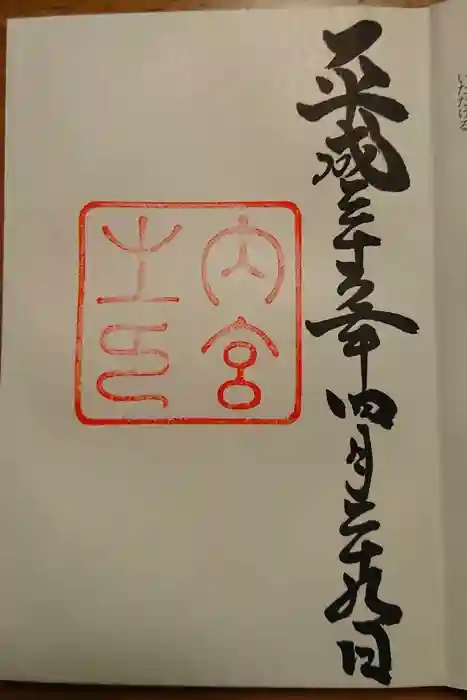 平成二十六年四月二十九日
内宮
之印
いただける